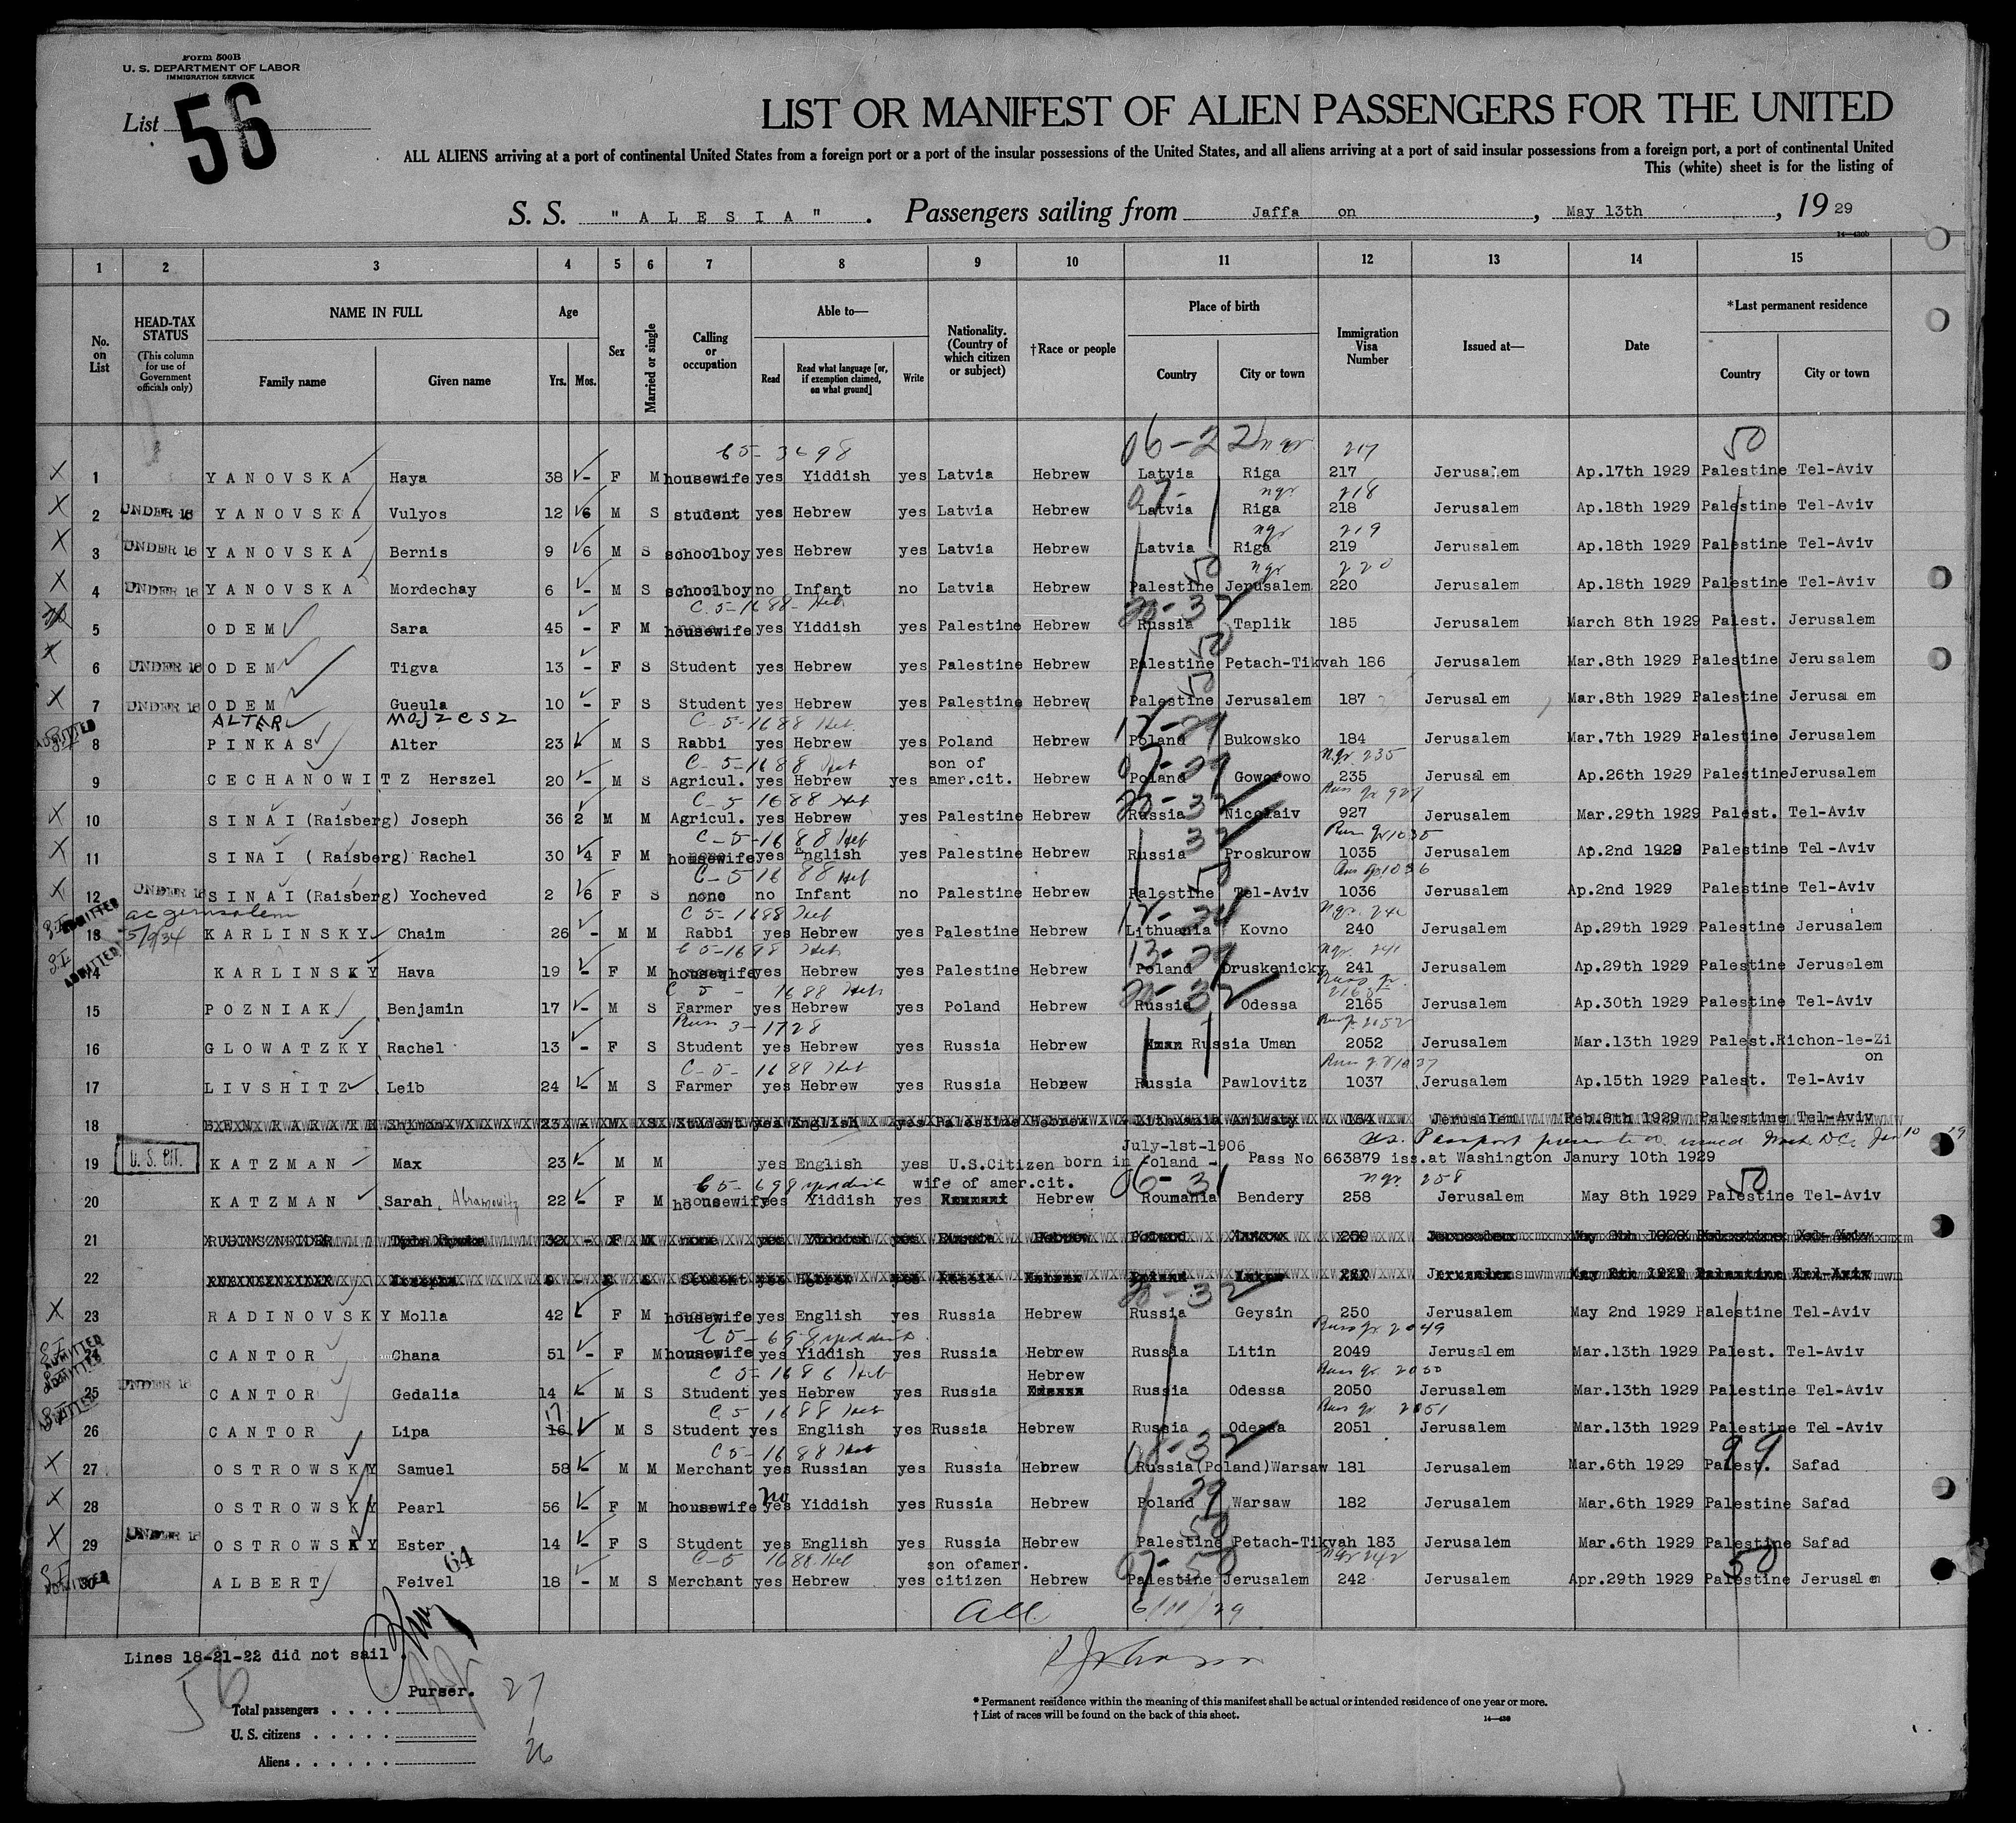 Form 500B
U. S. DEPARTMENT OF LABOR
IMMIGRATION SERVICE
List 56
LIST OR MANIFEST OF ALIEN PASSENGERS FOR THE UNITED
ALL ALIENS arriving at a port of continental United States from a foreign port or a port of the insular possessions of the United States, and all aliens arriving at a port of said insular possessions from a foreign port, a port of continental United
This (white) sheet is for the listing of
S. S. "ALESIA". Passengers sailing from Jaffa on, May 13th, 1929
14—430b
1 2 3 4 5 6 7 8 9 10 11 12 13 14 15
No. on List
HEAD-TAX STATUS (This column for use of Government officials only)
NAME IN FULL Family name Given name
Age Yrs. Mos.
Sex
Married or single
Calling or occupation
Able to— Read Read what language [or, if exemption claimed, on what ground] Write
Nationality. (Country of which citizen or subject)
†Race or people
Place of birth Country City or town
Immigration Visa Number
Issued at—
Date
*Last permanent residence Country City or town
C5-3698 06-22 ngr 217 50
X 1 YANOVSKA Haya 38 - F M housewife yes Yiddish yes Latvia Hebrew Latvia Riga 217 Jerusalem Ap.17th 1929 Palestine Tel-Aviv
ngr 218
X 2 UNDER 16 YANOVSKA Vulyos 12 6 M S student yes Hebrew yes Latvia Hebrew Latvia Riga 218 Jerusalem Ap.18th 1929 Palestine Tel-Aviv
ngr 219
X 3 UNDER 16 YANOVSKA Bernis 9 6 M S schoolboy yes Hebrew yes Latvia Hebrew Latvia Riga 219 Jerusalem Ap.18th 1929 Palestine Tel-Aviv
50 ngr 220
X 4 UNDER 16 YANOVSKA Mordechay 6 - M S schoolboy no Infant no Latvia Hebrew Palestine Jerusalem 220 Jerusalem Ap.18th 1929 Palestine Tel-Aviv
C.5-1688-Heb 20-32
5 ODEM Sara 45 - F M housewife yes Yiddish yes Palestine Hebrew Russia Taplik 185 Jerusalem March 8th 1929 Palest. Jerusalem
50
X 6 UNDER 16 ODEM Tigva 13 - F S Student yes Hebrew yes Palestine Hebrew Palestine Petach-Tikvah 186 Jerusalem Mar.8th 1929 Palestine Jerusalem
50
X 7 UNDER 16 ODEM Gueula 10 - F S Student yes Hebrew yes Palestine Hebrew Palestine Jerusalem 187 Jerusalem Mar.8th 1929 Palestine Jerusa em
ALTER MOJZESZ C-5-1688 Heb 12-29
ADMITTED 8 PINKAS Alter 23 M S Rabbi yes Hebrew yes Poland Hebrew Poland Bukowsko 184 Jerusalem Mar.7th 1929 Palestine Jerusalem
C-5-1688 Heb son of 07-29 ngr. 235
9 CECHANOWITZ Herszel 20 - M S Agricul. yes Hebrew yes amer.cit. Hebrew Poland Goworowo 235 Jerusalem Ap.26th 1929 Palestine Jerusalem
C-5 1688 Heb 20-32 Russ qr 927
X 10 SINAI (Raisberg) Joseph 36 2 M M Agricul. yes Hebrew yes Palestine Hebrew Russia Nicolaiv 927 Jerusalem Mar.29th 1929 Palest. Tel-Aviv
C-5-1688 Heb 32 Russ qr 1035
X 11 SINAI (Raisberg) Rachel 30 4 F M housewife yes English yes Palestine Hebrew Russia Proskurow 1035 Jerusalem Ap.2nd 1929 Palestine Tel-Aviv
C-5 1688 Heb 50 Russ qr 1036
X 12 UNDER 16 SINAI (Raisberg) Yocheved 2 6 F S none no Infant no Palestine Hebrew Palestine Tel-Aviv 1036 Jerusalem Ap.2nd 1929 Palestine Tel-Aviv
ac Jerusalem C5-1688 Heb 12-24 ngr. 240
S.I. ADMITTED 13 5/9/34 KARLINSKY Chaim 26 - M M Rabbi yes Hebrew yes Palestine Hebrew Lithuania Kovno 240 Jerusalem Ap.29th 1929 Palestine Jerusalem
C5-1698 Heb 13-29 ngr. 241
S.I. ADMITTED 14 KARLINSKY Hava 19 - F M housewife yes Hebrew yes Palestine Hebrew Poland Druskenicky 241 Jerusalem Ap.29th 1929 Palestine Jerusalem
C 5 - 1688 Heb 20-32 Russ qr. 2165
15 POZNIAK Benjamin 17 - M S Farmer yes Hebrew yes Poland Hebrew Russia Odessa 2165 Jerusalem Ap.30th 1929 Palestine Tel-Aviv
Russ 3-1728 Russ qr 2052
16 GLOWATZKY Rachel 13 - F S Student yes Hebrew yes Russia Hebrew Russia Uman 2052 Jerusalem Mar.13th 1929 Palest. Richon-le-Zion
C-5- 1688 Heb Russ qr 1037
17 LIVSHITZ Leib 24 - M S Farmer yes Hebrew yes Russia Hebrew Russia Pawlovitz 1037 Jerusalem Ap.15th 1929 Palest. Tel-Aviv
18 Shimon 23 - M S Student yes English yes Palestine Hebrew Lithuania 164 Jerusalem Feb.8th 1929 Palestine Tel-Aviv
July-1st-1906 U.S. Passport presented issued Wash DC Jan 10 29
19 U. S. CIT. KATZMAN Max 23 - M M yes English yes U.S.Citizen born in Poland - Pass No 663879 iss.at Washington Janury 10th 1929
C5-698 Yiddish wife of amer.cit. 06-31 ngr 258 50
20 KATZMAN Sarah Abramowitz 22 - F M housewife yes Yiddish yes Hebrew Roumania Bendery 258 Jerusalem May 8th 1929 Palestine Tel-Aviv
21 32 - F M none yes Yiddish yes Russia Hebrew Poland 259 Jerusalem May 8th 1929 Palestine Tel-Aviv
22 Student yes Hebrew yes Russia Hebrew Poland Jerusalem May 8th 1929 Palestine Tel-Aviv
20-32
X 23 RADINOVSKY Molla 42 F M housewife yes English yes Russia Hebrew Russia Geysin 250 Jerusalem May 2nd 1929 Palestine Tel-Aviv
C5-698 Yiddish Russ qr 2049
S.I. ADMITTED 24 CANTOR Chana 51 - F M housewife yes Yiddish yes Russia Hebrew Russia Litin 2049 Jerusalem Mar.13th 1929 Palest. Tel-Aviv
C 5-1686 Heb Hebrew Russ qr. 2050
ADMITTED 25 UNDER 16 CANTOR Gedalia 14 - M S Student yes Hebrew yes Russia Russia Odessa 2050 Jerusalem Mar.13th 1929 Palestine Tel-Aviv
17 C.5 1688 Heb Russ qr. 2051
S.I. ADMITTED 26 CANTOR Lipa 16 M S Student yes English yes Russia Hebrew Russia Odessa 2051 Jerusalem Mar.13th 1929 Palestine Tel-Aviv
C5-1688 Heb 08-32 99
X 27 OSTROWSKY Samuel 58 - M M Merchant yes Russian yes Russia Hebrew Russia(Poland) Warsaw 181 Jerusalem Mar.6th 1929 Palest. Safad
no 29
X 28 OSTROWSKY Pearl 56 - F M housewife yes Yiddish yes Russia Hebrew Poland Warsaw 182 Jerusalem Mar.6th 1929 Palestine Safad
50
X 29 UNDER 16 OSTROWSKY Ester 14 - F S Student yes English yes Russia Hebrew Palestine Petach-Tikvah 183 Jerusalem Mar.6th 1929 Palestine Safad
64 C-5 1688 Heb son ofamer. 07-50 ngr 242 50
S.I. ADMITTED 30 ALBERT Feivel 18 - M S Merchant yes Hebrew yes citizen Hebrew Palestine Jerusalem 242 Jerusalem Apr.29th 1929 Palestine Jerusal e
All 6/11/29
Lines 18-21-22 did not sail.
56
Purser.
Total passengers . . . . 27
U. S. citizens . . . . . 1
Aliens . . . . . . 26
* Permanent residence within the meaning of this manifest shall be actual or intended residence of one year or more.
† List of races will be found on the back of this sheet.
14—430